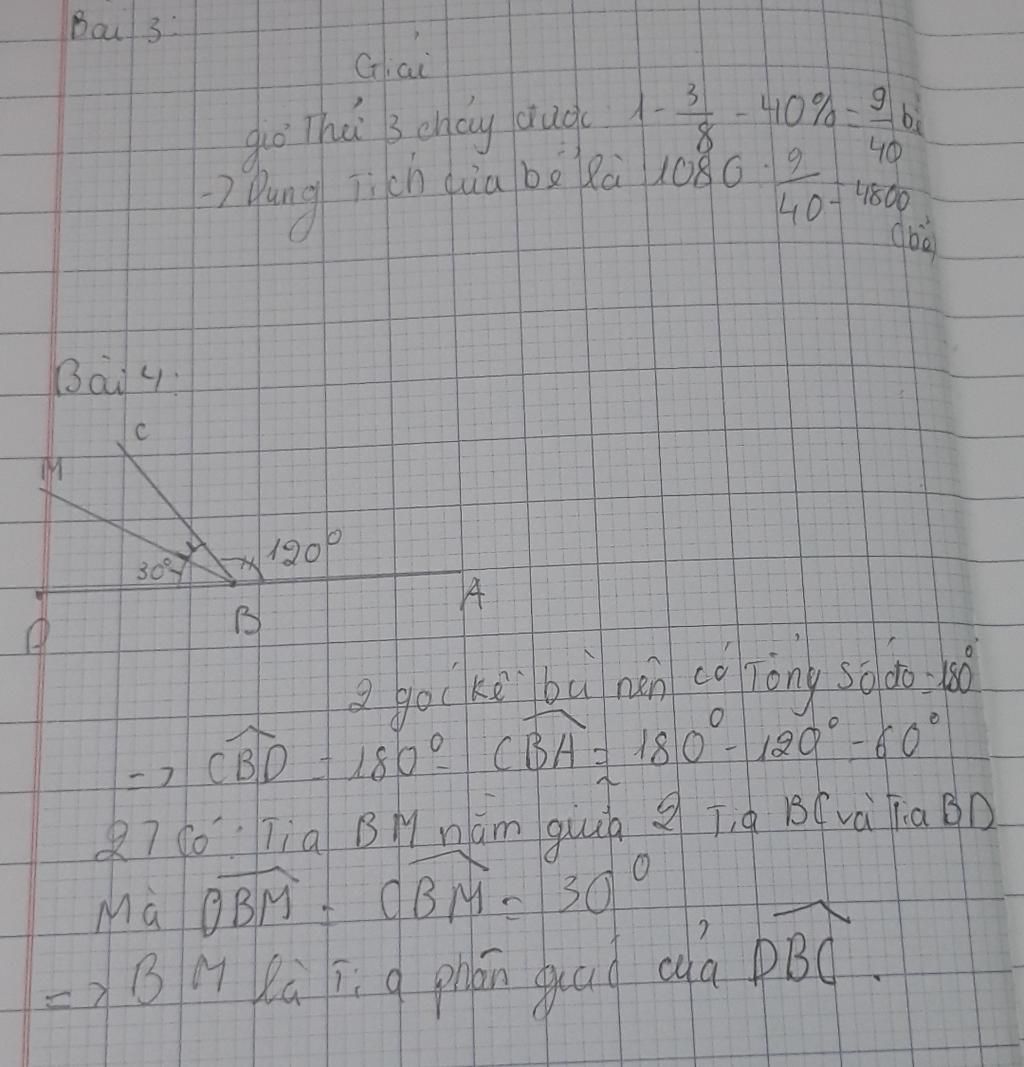 Bài 3:
Giải
giờ Thứ 3 chảy được 1 - 3/8 - 40% = 9/40 bể
-> Dung Tích của bể là 1080 . 9/40 = 4800
(bể)
Bài 4:
C
M
120°
30°
A
B
D
2 góc kề bù nên có Tổng số đo = 180°
=> CBD = 180° - CBA = 180° - 120° = 60°
có: Tia BM nằm giữa 2 Tia BC và Tia BD
Mà DBM = CBM = 30°
=> BM là Tia phân giác của DBC.